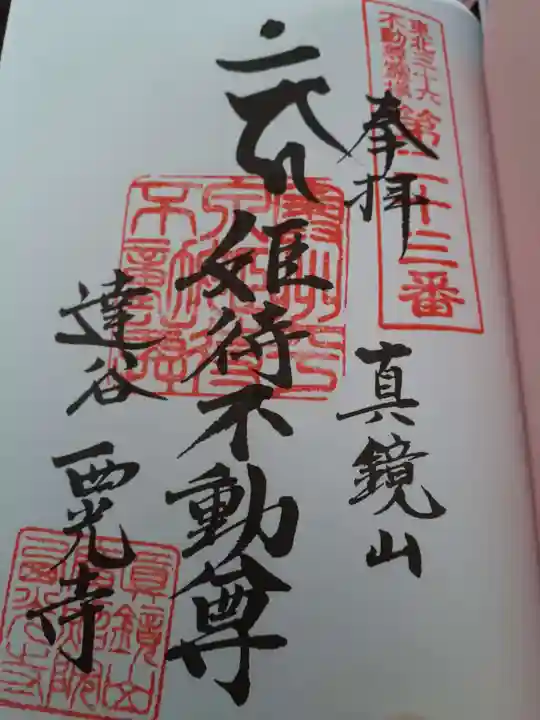 東北三十六
不動尊霊場
第二十三番
奉拝
真鏡山
姫待不動尊
達谷
西光寺